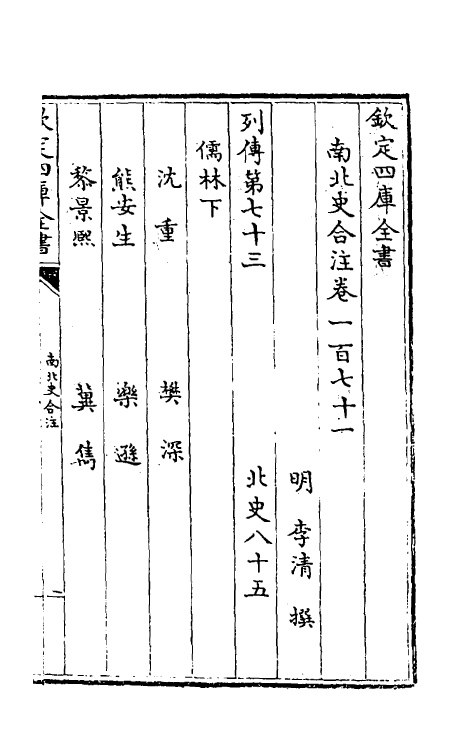 欽定四庫全書
南北史合注卷一百七十一
明 李清 撰
列傳第七十三 北史八十五
儒林下
沈重 樊深
熊安生 樂遜
黎景熈 冀儁
欽定四庫全書 南北史合注 一